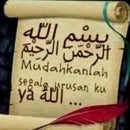 بِسْمِ اللهِ
الرَّحْمَنِ الرَّحِيْمِ
Mudahkanlah
segala urusan ku
ya الله ...